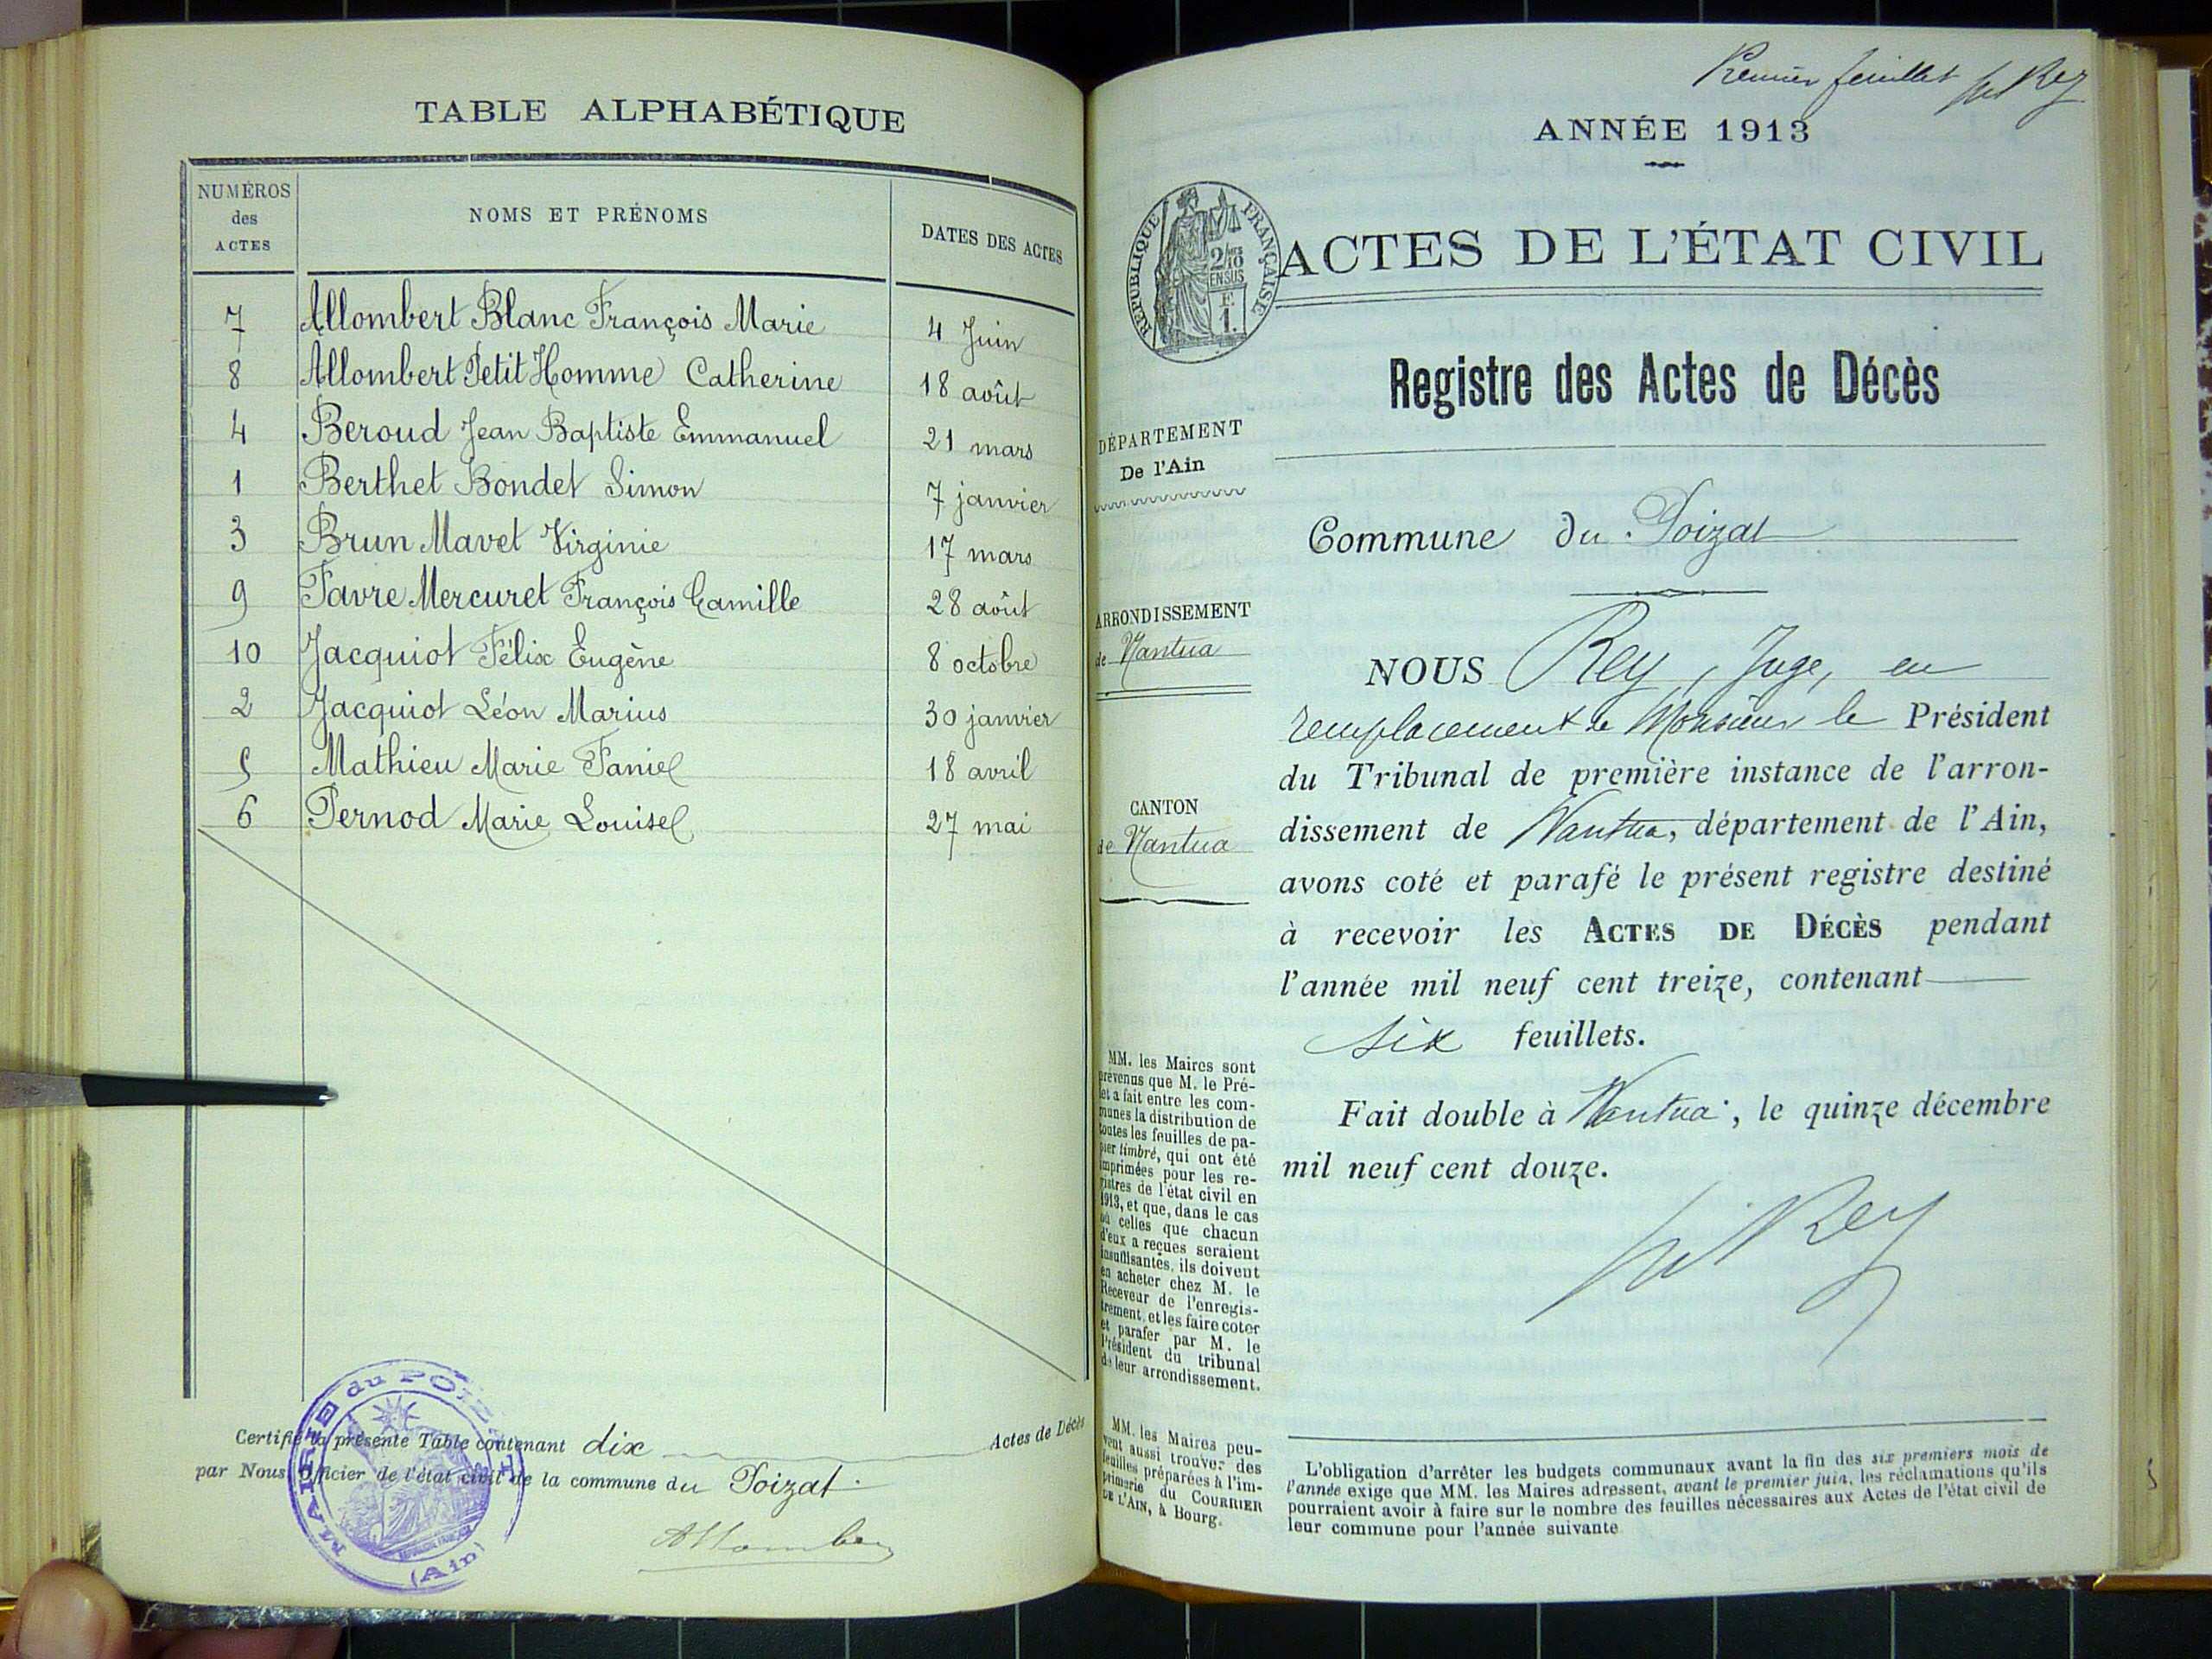 TABLE ALPHABÉTIQUE
NUMÉROS des ACTES
NOMS ET PRÉNOMS
DATES DES ACTES
7 Allombert Blanc François Marie 4 Juin
8 Allombert Petit Homme Catherine 18 août
4 Beroud Jean Baptiste Emmanuel 21 mars
1 Berthet Bondet Simon 7 janvier
3 Brun Mavet Virginie 17 mars
9 Favre Mercuret François Camille 28 août
10 Jacquiot Félix Eugène 8 octobre
2 Jacquiot Léon Marius 30 janvier
5 Mathieu Marie 18 avril
6 Pernod Marie Louise 27 mai
Certifié la présente Table contenant dix Actes de Décès
par Nous Officier de l'état civil de la commune du Poizat.
MAIRIE du POIZAT
(Ain)
Premier feuillet Rey
ANNÉE 1913
RÉPUBLIQUE FRANÇAISE
ACTES DE L'ÉTAT CIVIL
Registre des Actes de Décès
DÉPARTEMENT
De l'Ain
Commune du Poizat
ARRONDISSEMENT
de Nantua
CANTON
de Nantua
NOUS Rey, Juge, en
remplacement de Monsieur le Président
du Tribunal de première instance de l'arron-
dissement de Nantua, département de l'Ain,
avons coté et parafé le présent registre destiné
à recevoir les ACTES DE DÉCÈS pendant
l'année mil neuf cent treize, contenant
six feuillets.
Fait double à Nantua, le quinze décembre
mil neuf cent douze.
Rey
MM. les Maires sont
prévenus que M. le Pré-
fet a fait entre les com-
munes la distribution de
toutes les feuilles de pa-
pier timbré, qui ont été
imprimées pour les re-
gistres de l'état civil en
1913, et que, dans le cas
où celles que chacun
d'eux a reçues seraient
insuffisantes, ils doivent
en acheter chez M. le
Receveur de l'enregis-
trement, et les faire coter
et parafer par M. le
Président du tribunal
de leur arrondissement.
MM. les Maires peu-
vent aussi trouver des
feuilles préparées à l'im-
primerie du COURRIER
DE L'AIN, à Bourg.
L'obligation d'arrêter les budgets communaux avant la fin des six premiers mois de
l'année exige que MM. les Maires adressent, avant le premier juin, les réclamations qu'ils
pourraient avoir à faire sur le nombre des feuilles nécessaires aux Actes de l'état civil de
leur commune pour l'année suivante